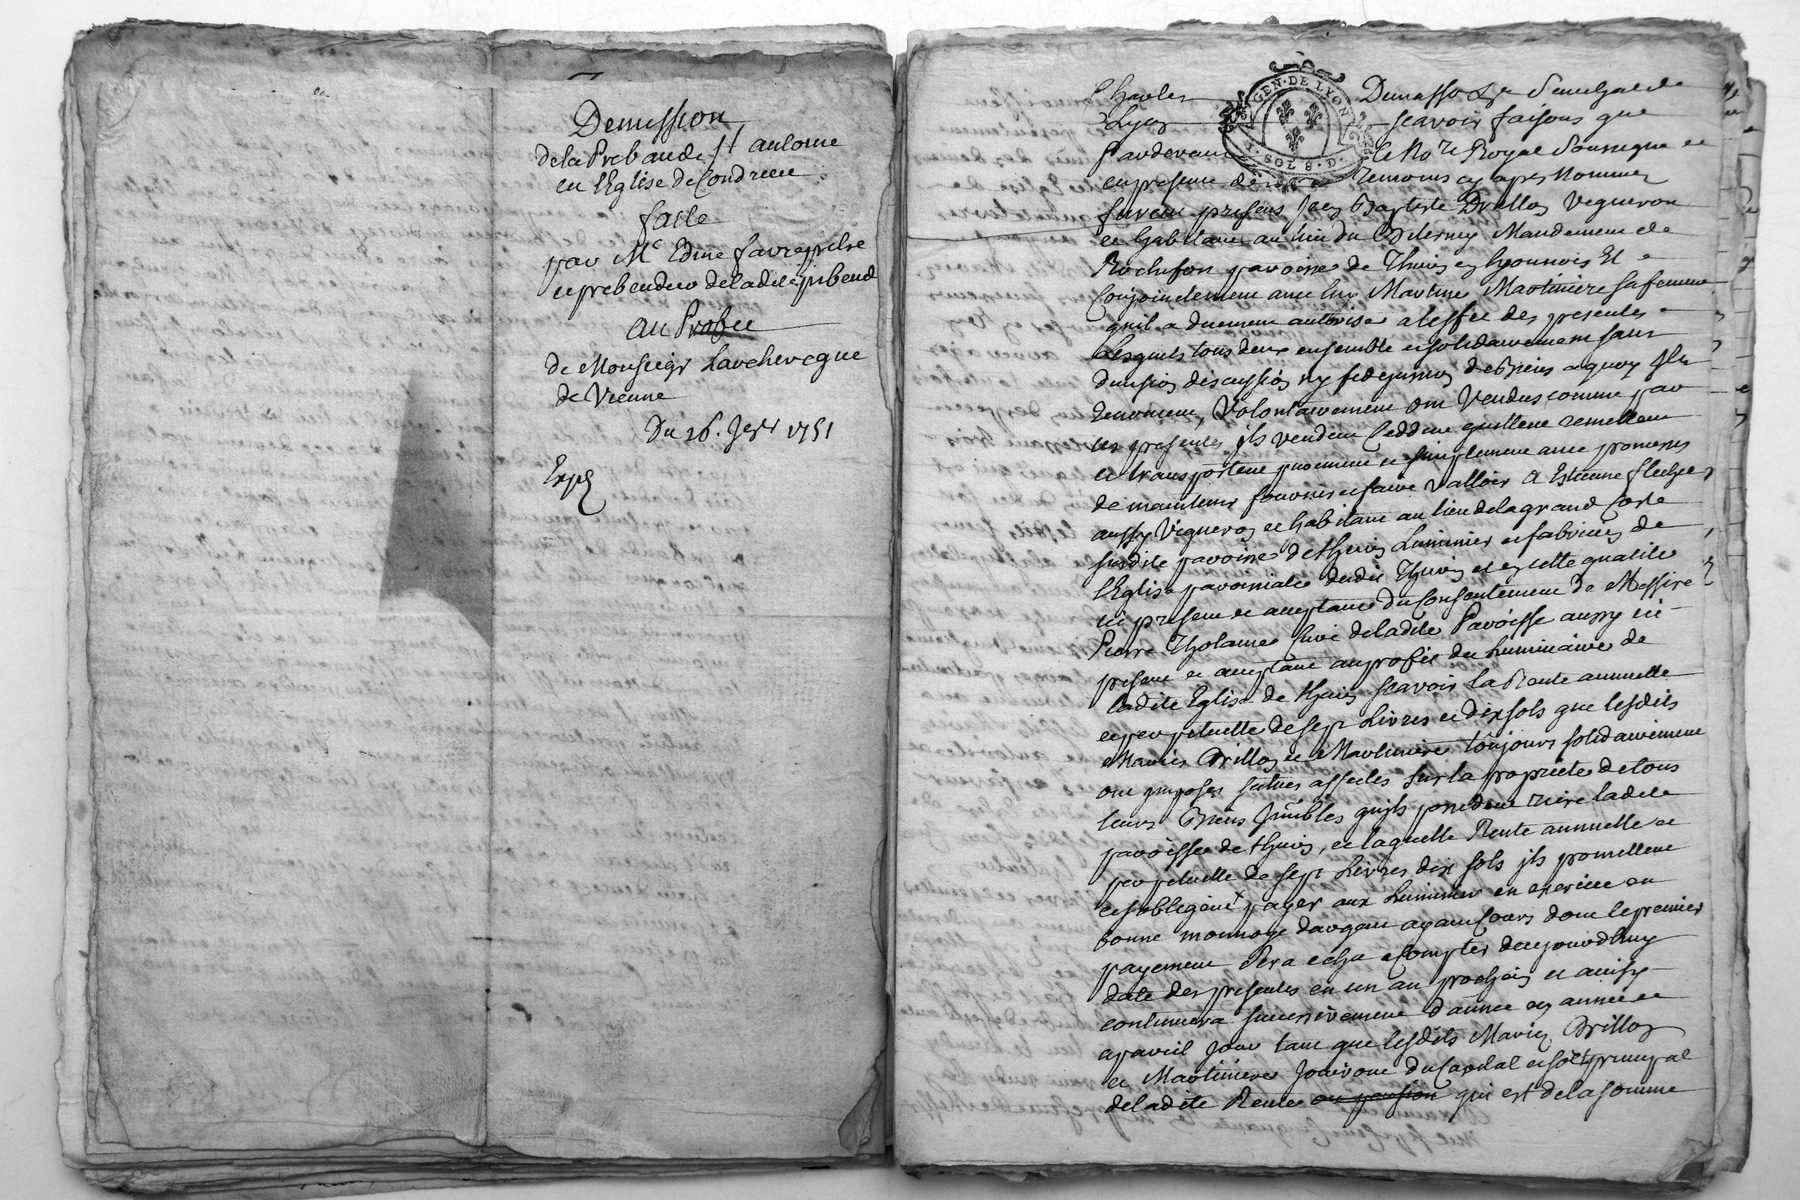 Demission
de la Prebande St antoine
en l'Eglise de Condrieu
faite
par Me Edme favre prebstre
et prebendier de ladite prebende
au Profict
de Monseigr L'archeveque
de Vienne
Du 26. 1751
Expé
Charles Demasso Sgr Senechal de
Lyon scavoir faisons que
Pardevant le Nore Royal soussigne et
en presence des temoins cy apres Nommez
furent presens Jean Baptiste Drillon Vigneron
et habitant au lieu du Mandement de
Rochefort paroisse de Thurin en lyonnois Et
Conjoinctement avec luy Martine Martiniere sa femme
quil a duement authorise a leffet des presentes
Lesquels tous deux ensemble et solidairement sans
division discussion ny fidejussion de biens a quoy ils
renoncent, Volontairement ont Vendus comme par
ces presentes ils vendent Ceddent quittent remettent
et transportent purement et simplement avec promesses
de maintenir fournir et faire Valloir A Estienne flechet
aussy Vigneron et habitant au lieu de la grand Coste
susdite paroisse de thurin Luminier et fabricien de
l'Eglise paroissiale dudit Thurin et en cette qualité
ici present et acceptant du Consentement de Messire
Pierre Tholance Curé de ladite Paroisse aussy ici
present et acceptant au profit du Luminaire de
ladite Eglise de thurin scavoir la Rente annuelle
et perpetuelle de sept Livres et dix sols que lesdits
Mariés Drillon et Martiniere toujours solidairement
ont imposés scitués assectés sur la propriete de tous
leurs Biens Jmūbles quils possedent riere ladite
paroisse de thurin, et laquelle Rente annuelle et
perpetuelle de sept Livres dix sols ils promettent
et sobligent payer aux Luminier en exercice en
bonne monnoye d'argent ayant Cours dont le premier
payement sera echu a Compter de ajourdhuy
date des presentes en un an prochain et ainsy
continuera successivement d'année en année et
a pareil jour tant que lesdits Mariez Drillon
et Martiniere Jouiront du Capital et sort principal
de ladite Rente ou pension qui est de la somme